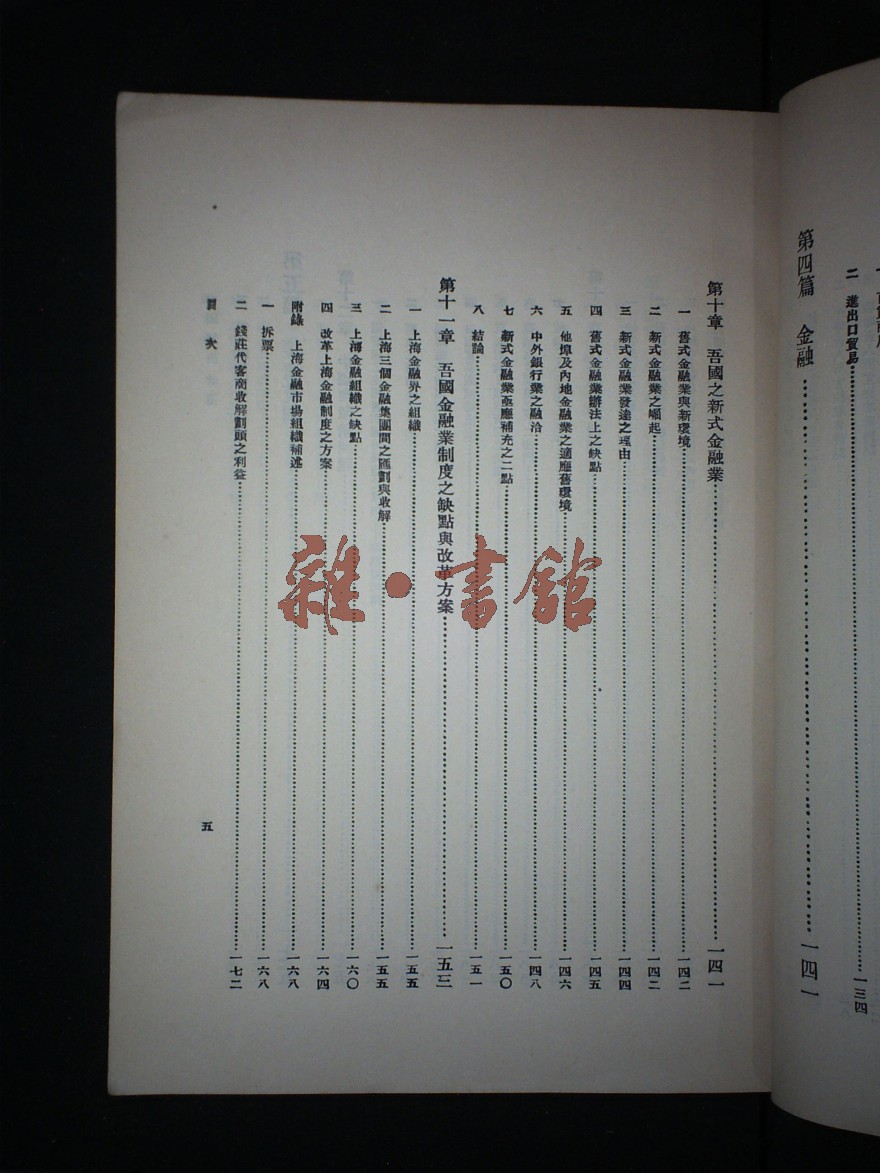 二 進出口貿易 一三四
第四篇 金融 一四一
第十章 吾國之新式金融業 一四一
一 舊式金融業與新環境 一四二
二 新式金融業之崛起 一四二
三 新式金融業發達之理由 一四四
四 舊式金融業辦法上之缺點 一四五
五 他埠及內地金融業之適應舊環境 一四六
六 中外銀行業之融洽 一四八
七 新式金融業亟應補充之二點 一五〇
八 結論 一五一
第十一章 吾國金融業制度之缺點與改革方案 一五三
一 上海金融界之組織 一五五
二 上海三個金融集團間之匯劃與收解 一五五
三 上海金融組織之缺點 一六〇
四 改革上海金融制度之方案 一六四
附錄 上海金融市場組織補述 一六八
一 拆票 一六八
二 錢莊代客商收解劃頭之利益 一七二
目次
五
雜·書館